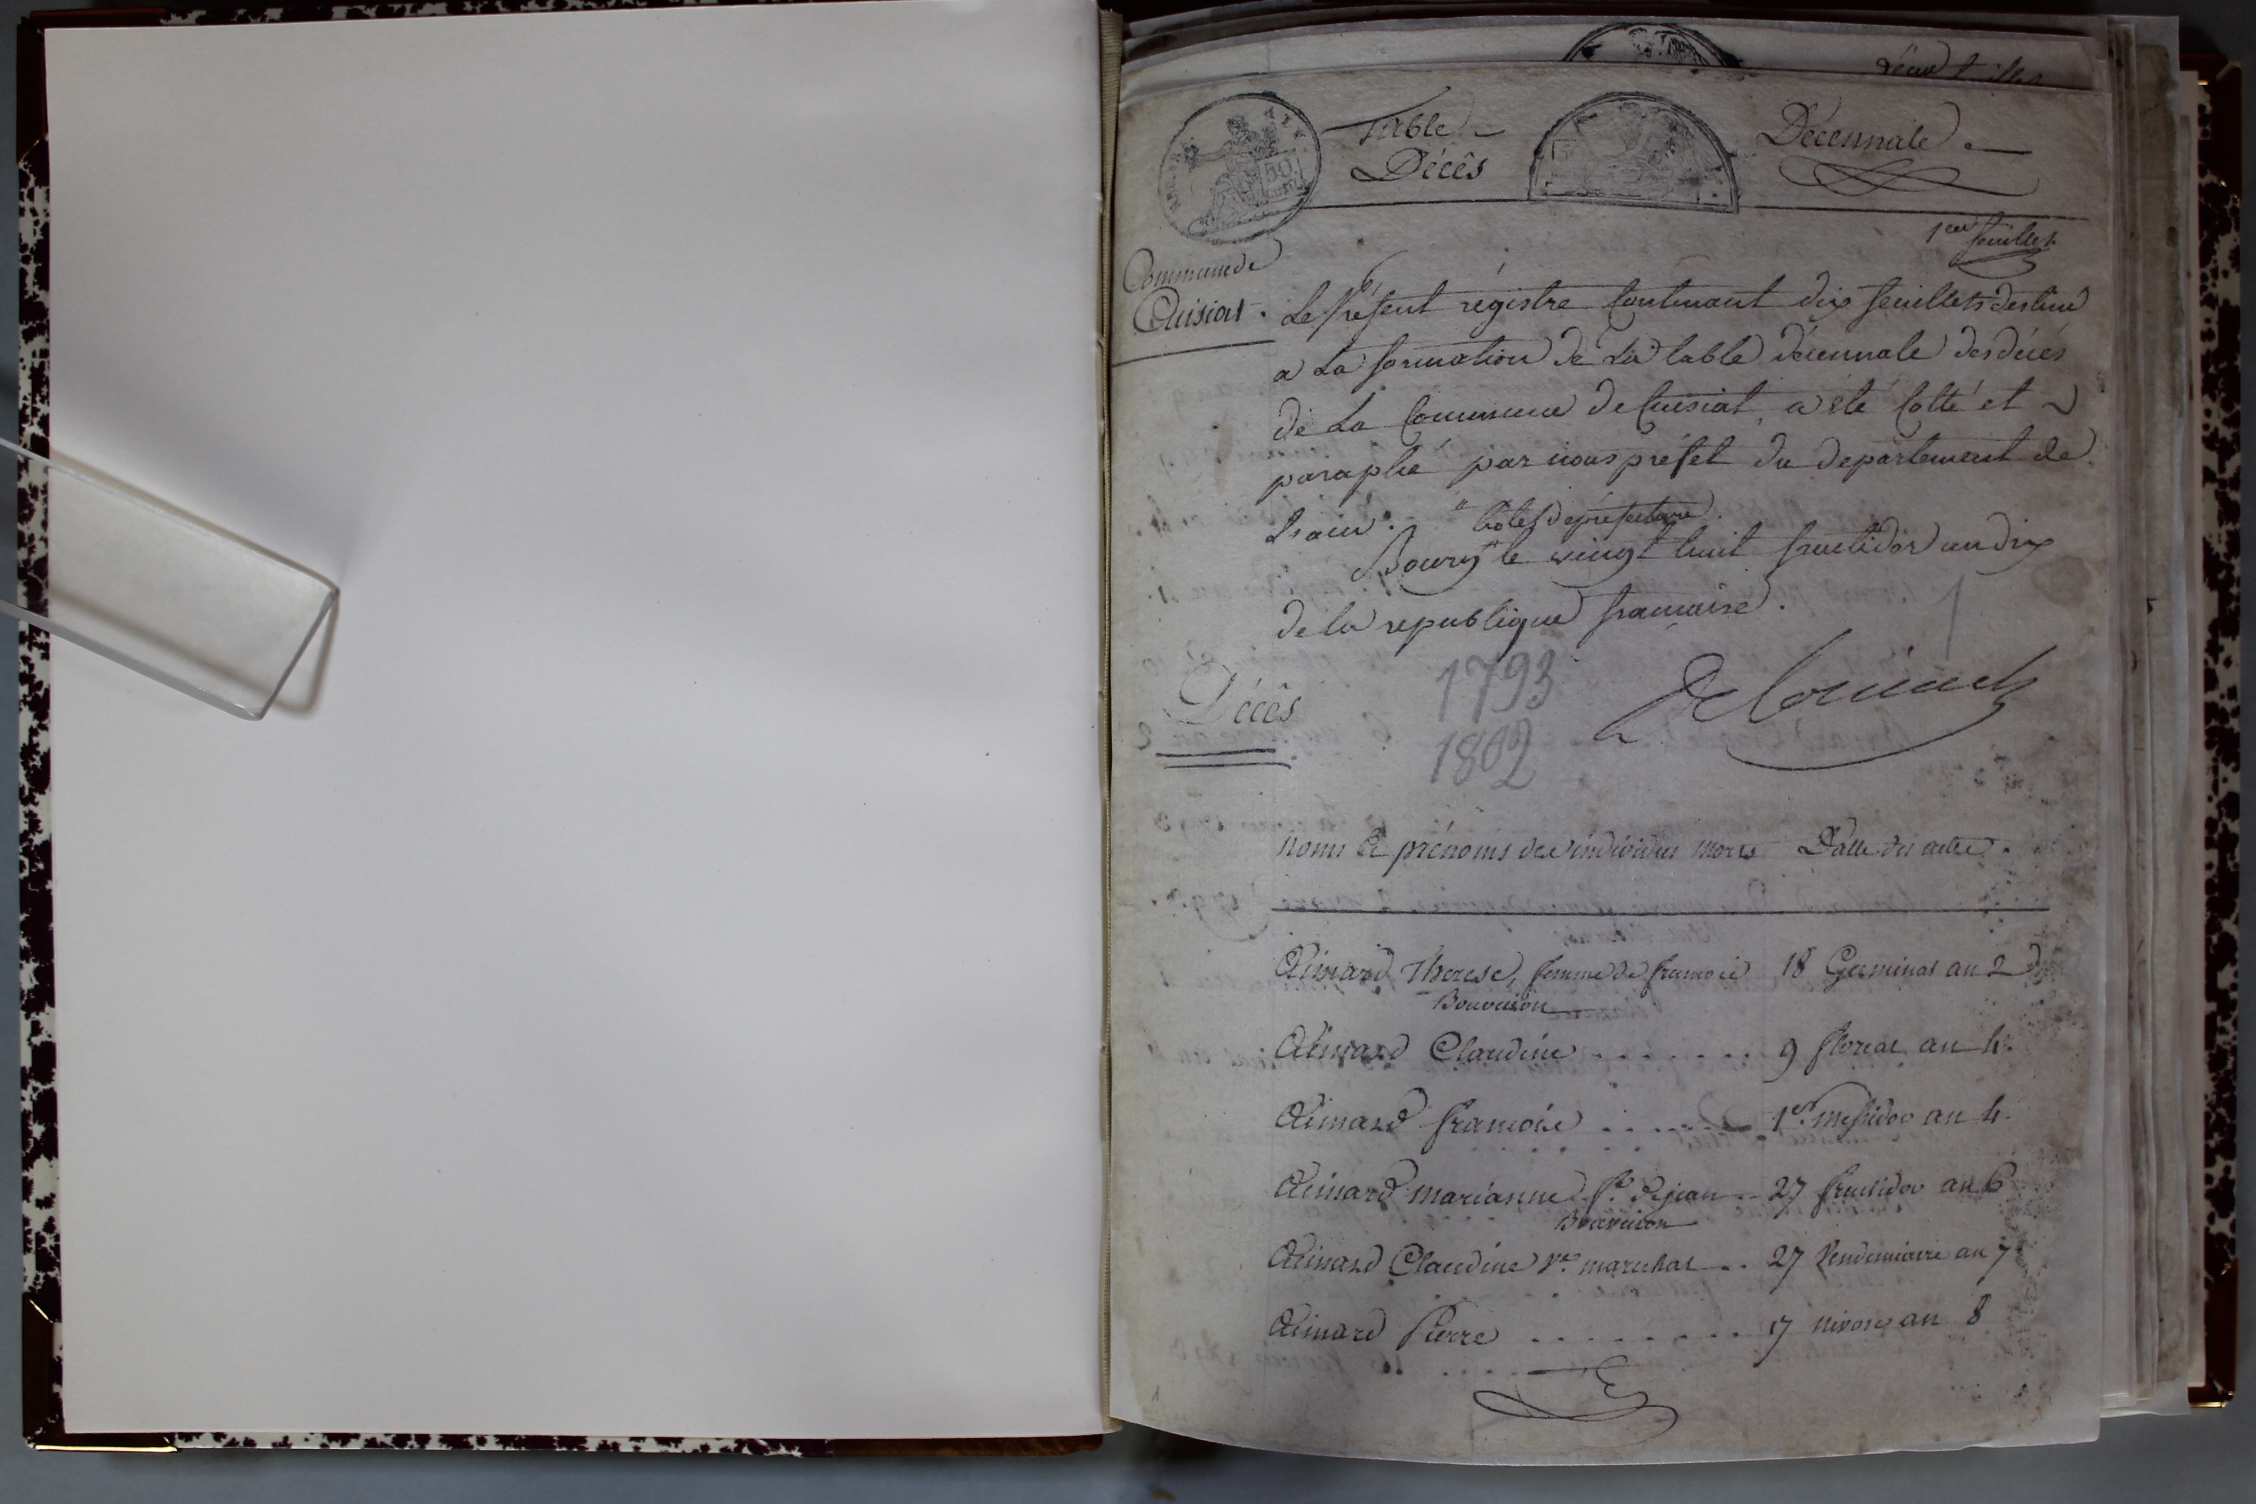 Table Décennale
Décês
1er feuillet
Commune de
Cuisiat. Le Présent régistre Contenant dix feuillets destiné
a La formation de La table décennale des décés
de La Commune de Cuisiat a été Cotté et
paraphé par nous préfet du departement de
L'ain.
hotel de préfecture
Bourg le vingt huit fructidor an dix
de la republique francaise.
1793
Décês
1802
noms & prénoms des individus morts Datte des actes.
Aimard Therese, femme de francois 18 Germinal an 2
Bouvaion
Aimard Claudine . . . . . . . 9 floreal an 4.
Aimard francoise . . . . . . 1er messidor an 4.
Aimard marianne fe. de jean 27 fructidor an 6
Aimard Claudine ve. marechal . . 27 Vendemiaire an 7
Aimard Pierre . . . . . . . . 17 nivose an 8